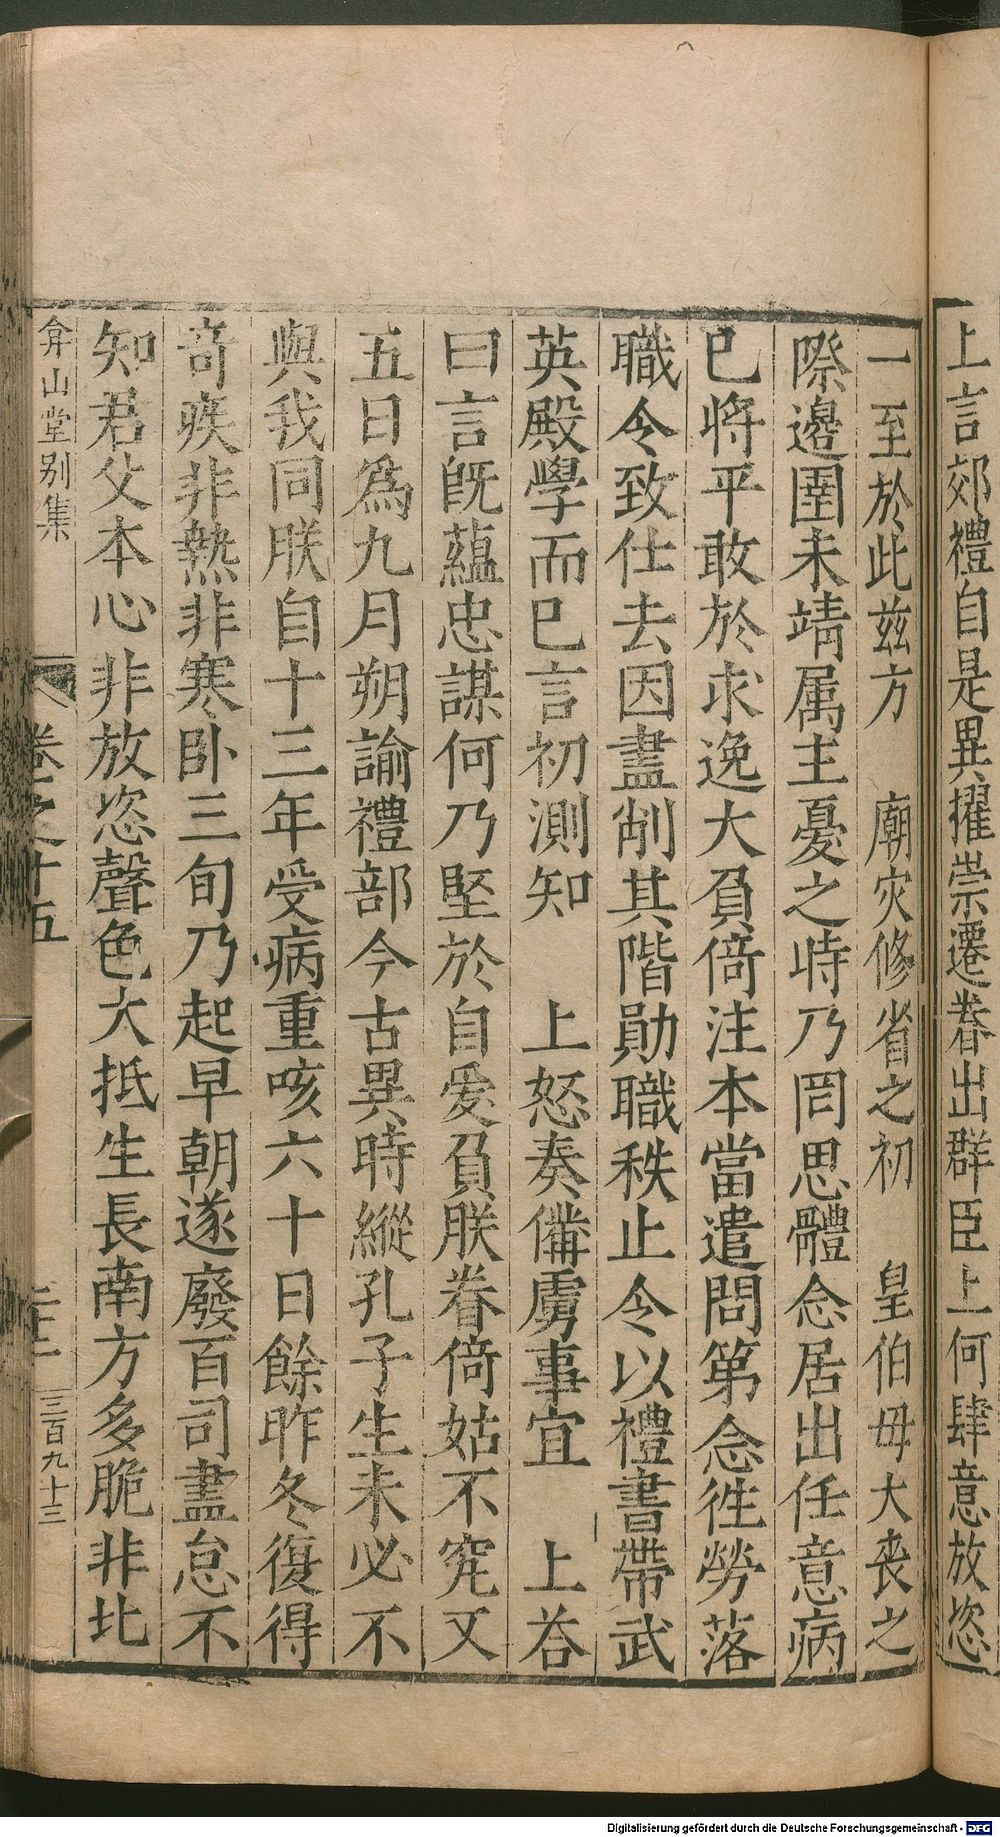 上言郊禮自是異擢崇遷眷出群臣上何肆意放恣
一至於此茲方　廟灾修省之初　皇伯母大喪之
際邊圉未靖属主憂之時乃罔思體念居出任意病
已將平敢於求逸大負倚注本當遣問第念徃勞落
職令致仕去因盡削其階勛職秩止令以禮書帶武
英殿學而已言初測知　上怒奏備虜事宜　上荅
曰言旣蘊忠謀何乃堅於自爰負朕眷倚姑不究又
五日爲九月朔諭禮部今古異時縱孔子生未必不
與我同朕自十三年受病重咳六十日餘昨冬復得
奇疾非熱非寒卧三旬乃起早朝遂廢百司盡怠不
知君父本心非放恣聲色大抵生長南方多脆非比
弇山堂别集　卷之十五　三百九十三
Digitalisierung gefördert durch die Deutsche Forschungsgemeinschaft - DFG